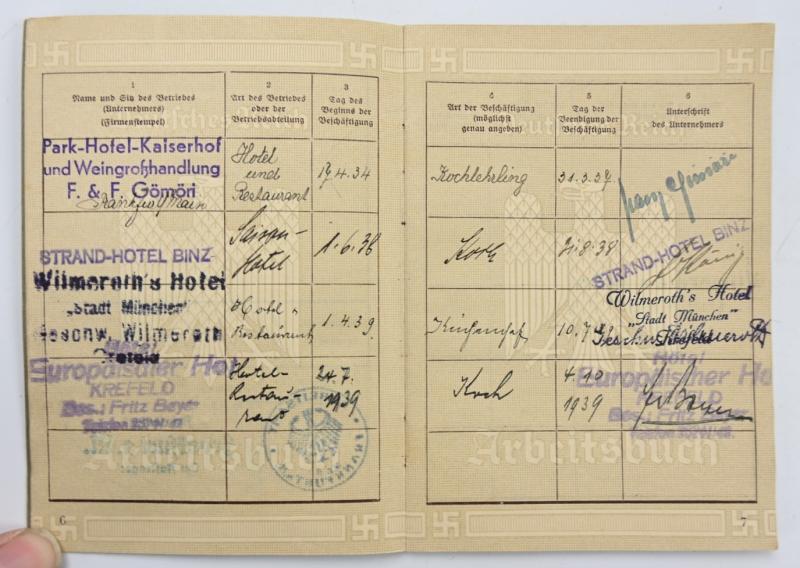 1
Name und Sitz des Betriebes
(Unternehmers)
(Firmenstempel)
2
Art des Betriebes
oder der
Betriebsabteilung
3
Tag des
Beginns der
Beschäftigung
Park-Hotel-Kaiserhof
und Weingroßhandlung
F. & F. Gömöri
Frankfurt/Main
Hotel
und
Restaurant
17.4.34
STRAND-HOTEL BINZ
Saison-
Hotel
1.6.38
Wilmeroth's Hotel
"Stadt München"
Geschw. Wilmeroth
Crefeld
Hotel
Restaurant
1.4.39.
Hotel
Europäischer Hof
KREFELD
Bes.: Fritz Beyer
Telefon
Hotel-
Restau-
rant
24.7.
1939
Arbeitsbuch
6
4
Art der Beschäftigung
(möglichst
genau angeben)
5
Tag der
Beendigung der
Beschäftigung
6
Unterschrift
des Unternehmers
Deutsches Reich
Kochlehrling
31.3.37
Koch
31.8.38
STRAND-HOTEL BINZ
10.7.
Wilmeroth's Hotel
"Stadt München"
Krefeld
Koch
4.10
1939
Hotel
Europäischer Ho
KREFELD
Bes.: Fritz Beyer
Telefon
Arbeitsbuch
7